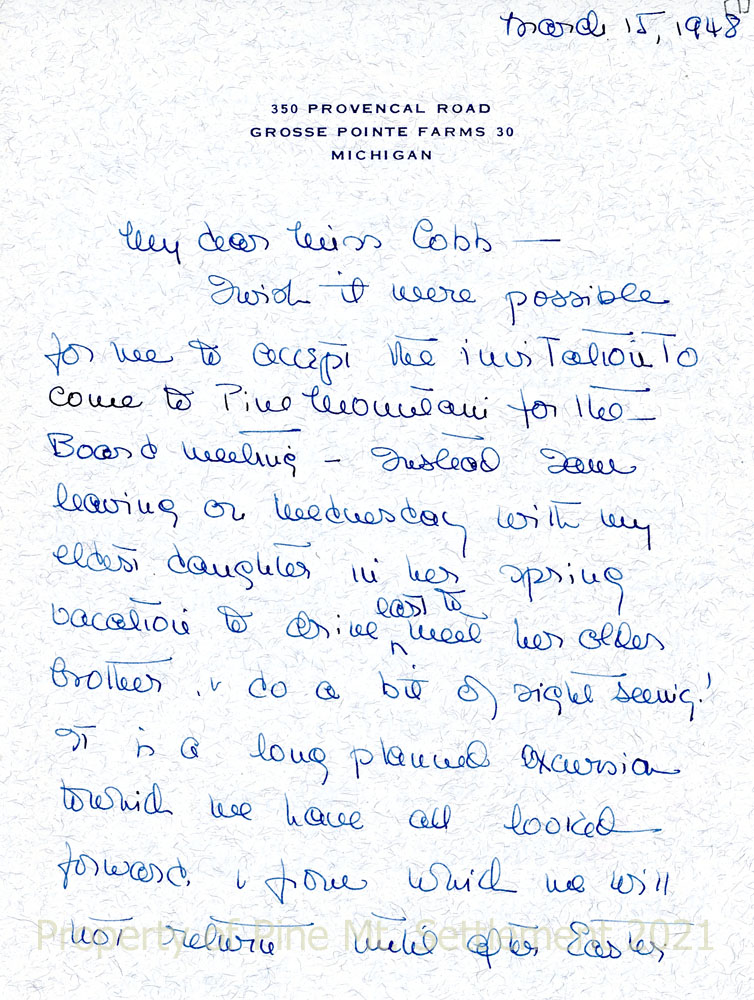 [1]
March 15, 1948
350 PROVENCAL ROAD
GROSSE POINTE FARMS 30
MICHIGAN
My dear Miss Cobb —
I wish it were possible
for me to accept the invitation to
come to Pine Mountain for the
Board meeting – Instead I am
leaving on Wednesday with my
eldest daughter in her spring
vacation to drive east to meet her older
brother & do a bit of sight seeing!
It is a long planned excursion
to which we have all looked
forward, & from which we will
not return until after Easter
Property of Pine Mt. Settlement 2021